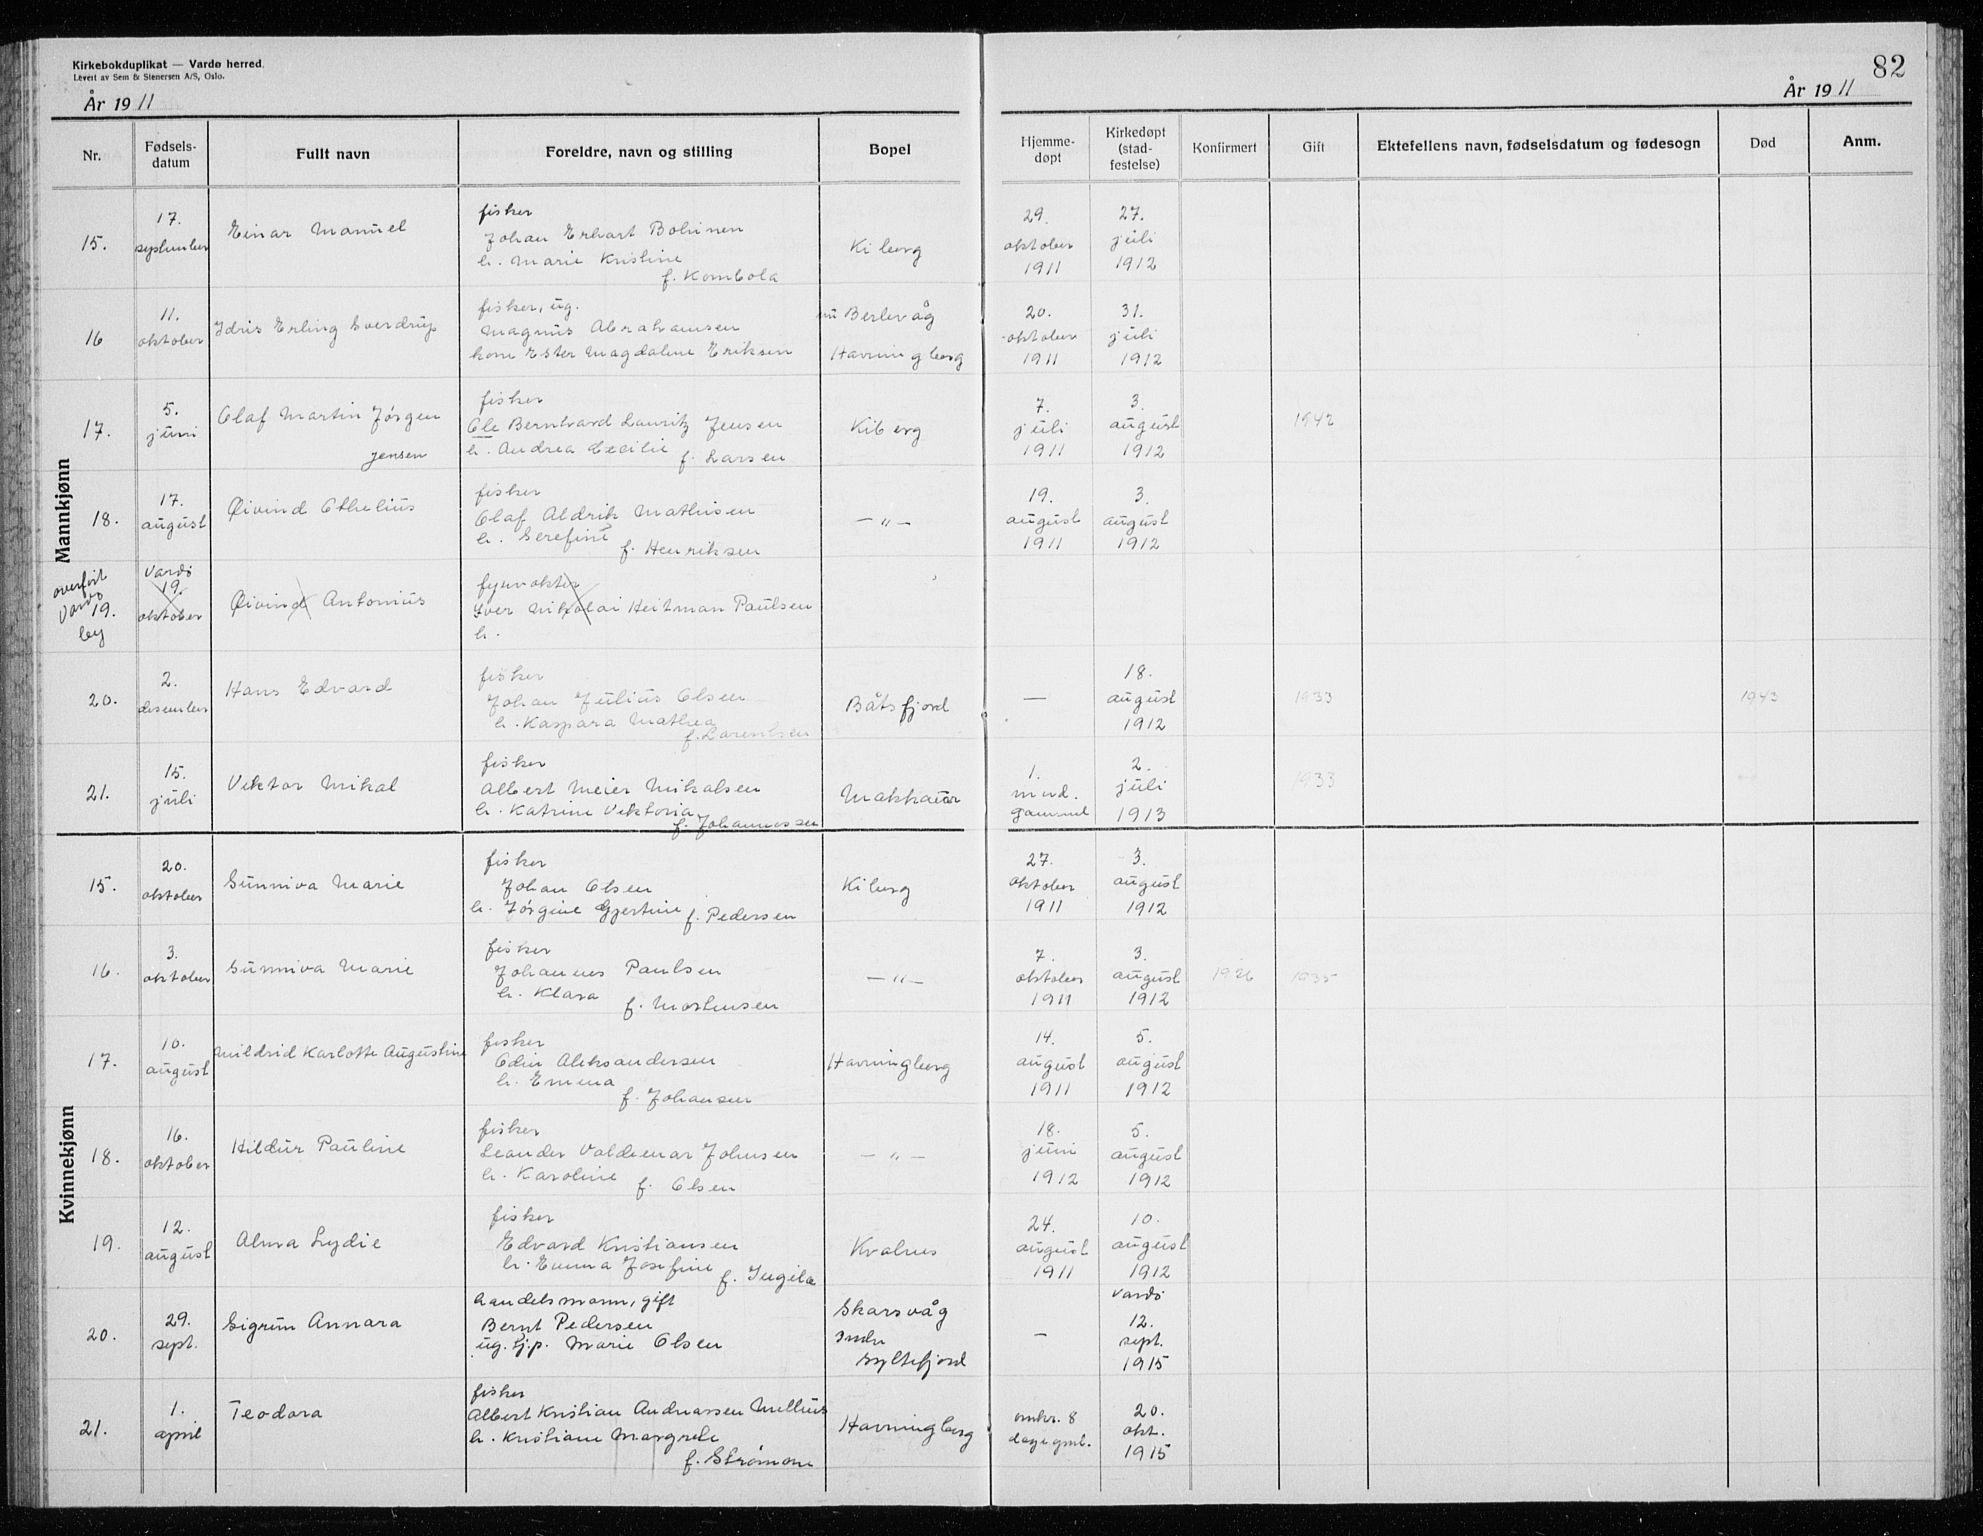 Kirkebokduplikat — Vardø herred.
Levert av Sem & Stenersen A/S, Oslo.
År 1911
82
År 1911
Nr. Fødsels-datum Fullt navn Foreldre, navn og stilling Bopel Hjemme-døpt Kirkedøpt (stad-festelse) Konfirmert Gift Ektefellens navn, fødselsdatum og fødesogn Død Anm.
Mannkjønn
fisker
15. 17. september Einar Manuel Johan Erhart Bohinen Kiberg 29. oktober 1911 27. juli 1912
h. Marie Kristine
f. Kombola
fisker, ug.
16 11. oktober Idris Erling Sverdrup Magnus Abrahamsen nu Berlevåg 20. oktober 1911 31. juli 1912
Ester Magdalene Eriksen Havningberg
fisker
17. 5. juni Olaf Martin Jørgen Jensen Ole Bernhard Lauritz Jensen Kiberg 7. juli 1911 3. august 1912 1942
h. Andrea Cecilie f. Larsen
fisker
18. 17. august Øivind Othelius Olaf Aldrik Mathisen — " — 19. august 1911 3. august 1912
h. Serefine
f. Henriksen
overført Vardø by
19. Vardø 19. oktober Øivind Antonius fyrvokter
Iver Nikolai Heitman Paulsen
h.
fisker
20. 2. desember Hans Edvard Johan Julius Olsen Båtsfjord — 18. august 1912 1933 1943
h. Kaspara Mathea
f. Lorentsen
fisker
21. 15. juli Viktor Mikal Albert Meier Mikalsen Makkaur 1. mnd. gammel 2. juli 1913 1933
h. Katrine Viktoria
f. Johannessen
Kvinnekjønn
fisker
15. 20. oktober Sunniva Marie Johan Olsen Kiberg 27. oktober 1911 3. august 1912
h. Jørgine Gjertine f. Pedersen
fisker
16. 3. oktober Sunniva Marie Johannes Paulsen — " — 7. oktober 1911 3. august 1912 1926 1935
h. Klara
f. Mortensen
fisker
17. 10. august Mildrid Karlotte Augustine Odin Aleksandersen Havningberg 14. august 1911 5. august 1912
h. Emma
f. Johansen
fisker
18. 16. oktober Hildur Pauline Leander Valdemar Johnsen — " — 18. juni 1912 5. august 1912
h. Karoline
f. Olsen
fisker
19. 12. august Alma Lydie Edvard Kristiansen Kvalnes 24. august 1911 10. august 1912
h. Emma Josefine
f. Ingilæ
handelsmann, gift
20. 29. sept. Sigrun Annara Bernt Pedersen Skarsvåg — Vardø 12. sept. 1915
ug. tj.p. Marie Olsen Indre Syltefjord
fisker
21. 1. april Teodora Albert Kristian Andreassen Mellius Havningberg omkr. 8 dage gml. 20. okt. 1915
h. Kristiane Margrete
f. Strømom